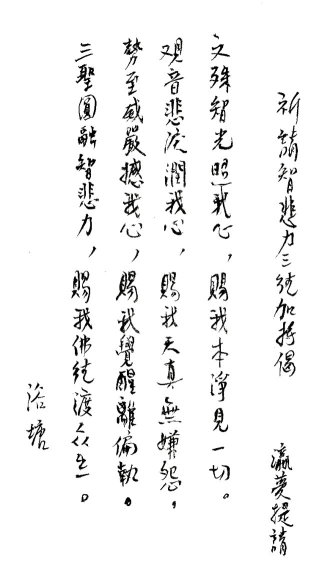 祈請智悲力三德加持偈
瀛夢提請
文殊智光照我心，賜我本淨見一切。
观音悲淚潤我心，賜我天真無嫌怨。
勢至威嚴撼我心，賜我覺醒離偏執。
三聖圓融智悲力，賜我佛德渡众生。
浴塘